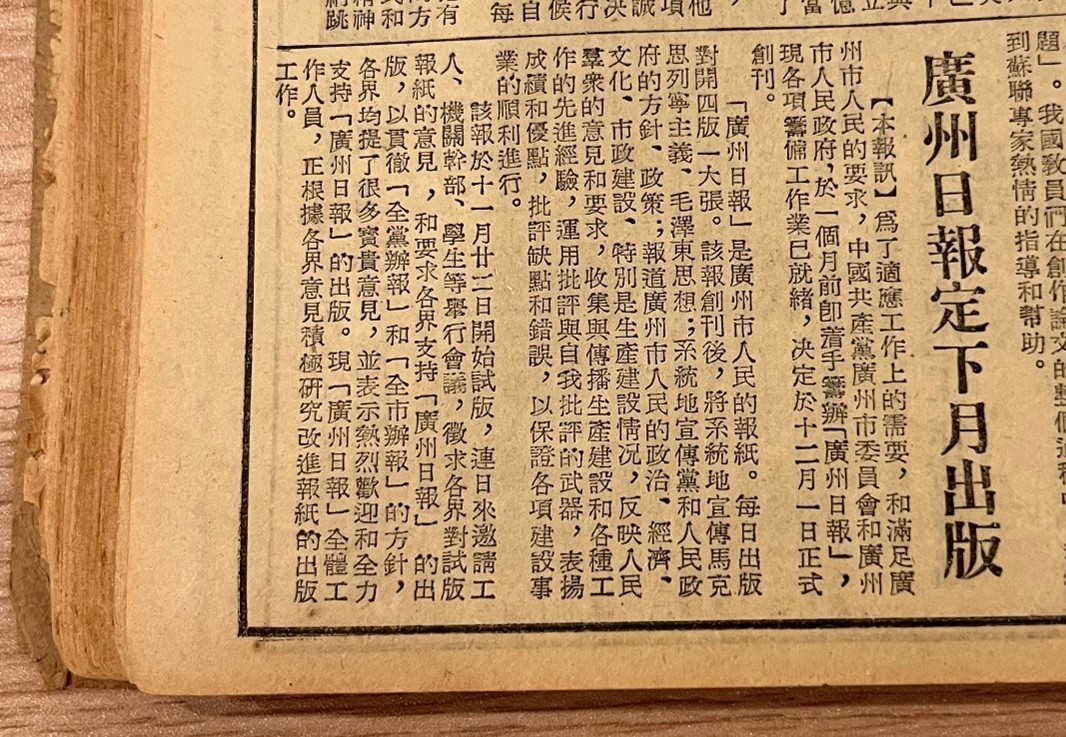 題」。我國教員們在創作論文的整個過程中
到蘇聯專家熱情的指導和幫助。
廣州日報定下月出版
【本報訊】爲了適應工作上的需要，和滿足廣
州市人民的要求，中國共產黨廣州市委員會和廣州
市人民政府，於一個月前卽着手籌辦「廣州日報」，
現各項籌備工作業已就緒，决定於十二月一日正式
創刊。
「廣州日報」是廣州市人民的報紙。每日出版
對開四版一大張。該報創刊後，將系統地宣傳馬克
思列寧主義、毛澤東思想；系統地宣傳黨和人民政
府的方針、政策；報道廣州市人民的政治、經濟、
文化、市政建設、特別是生產建設情况，反映人民
羣衆的意見和要求，收集與傳播生產建設和各種工
作的先進經驗，運用批評與自我批評的武器，表揚
成績和優點，批評缺點和錯誤，以保證各項建設事
業的順利進行。
該報於十一月廿二日開始試版，連日來邀請工
人、機關幹部、學生等舉行會議，徵求各界對試版
報紙的意見，和要求各界支持「廣州日報」的出
版，以貫徹「全黨辦報」和「全市辦報」的方針，
各界均提了很多寳貴意見，並表示熱烈歡迎和全力
支持「廣州日報」的出版。現「廣州日報」全體工
作人員，正根據各界意見積極研究改進報紙的出版
工作。